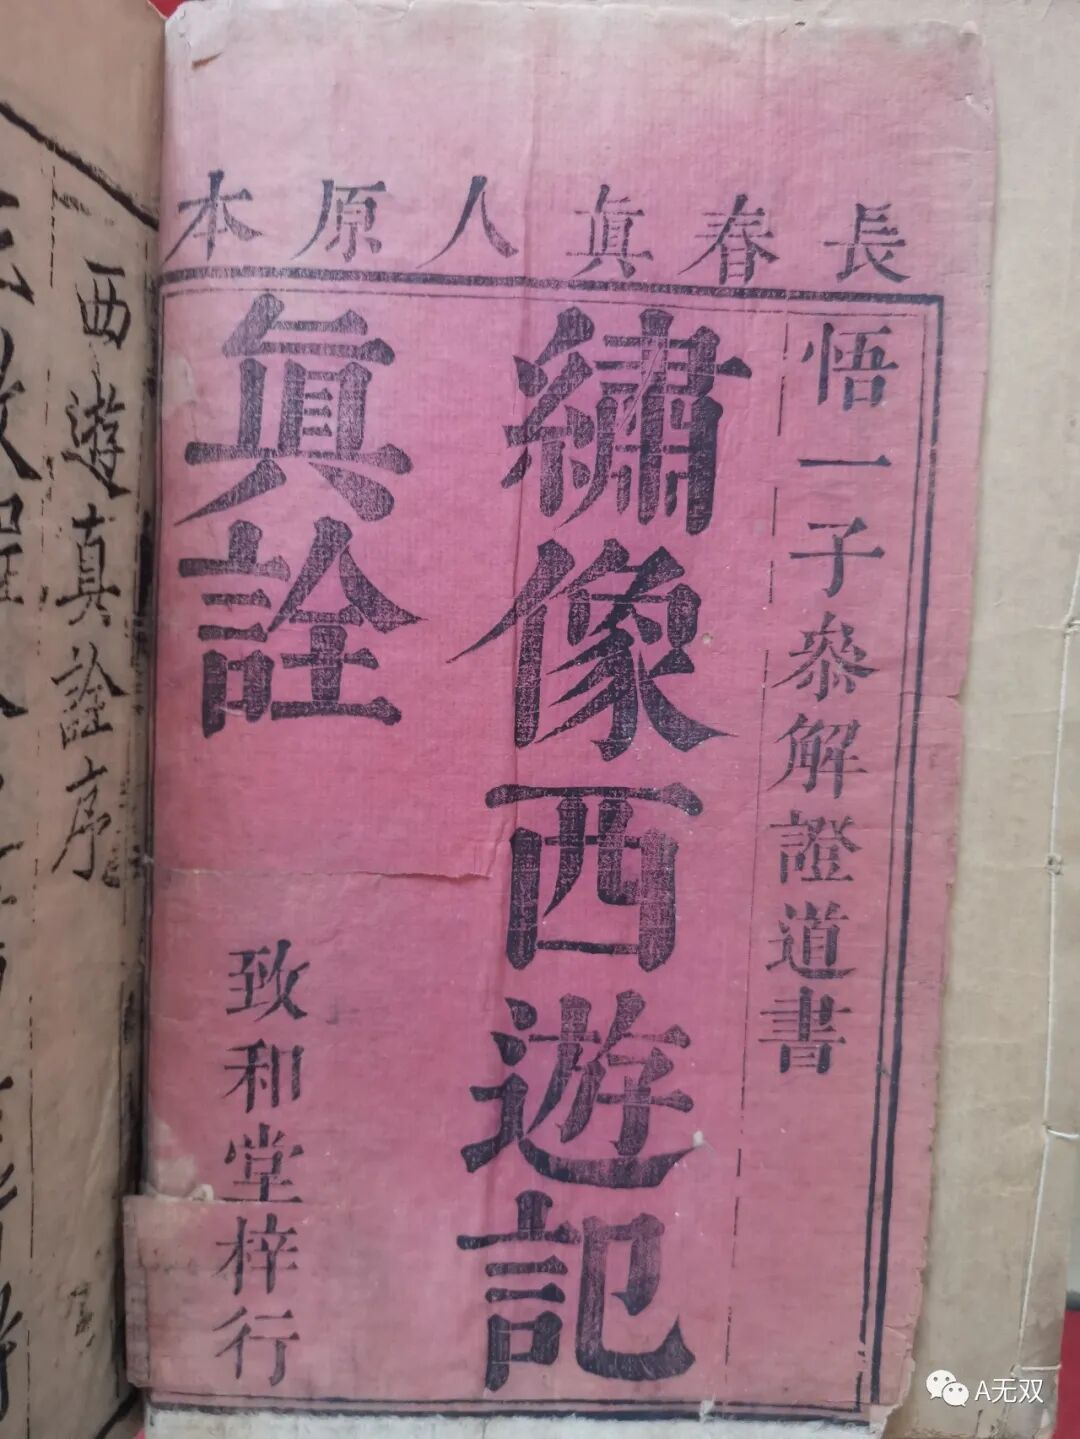 長春真人原本
悟一子叅解證道書
繡像西遊記
眞詮
致和堂梓行
西遊真詮序
A无双